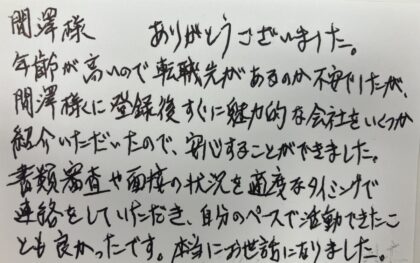 関澤様　ありがとうございました。
年齢が高いので転職先があるのか不安でしたが、
関澤様に登録後すぐに魅力的な会社をいくつか
紹介いただいたので、安心することができました。
書類審査や面接の状況を適度なタイミングで
連絡をしていただき、自分のペースで活動できたこ
とも良かったです。本当にお世話になりました。